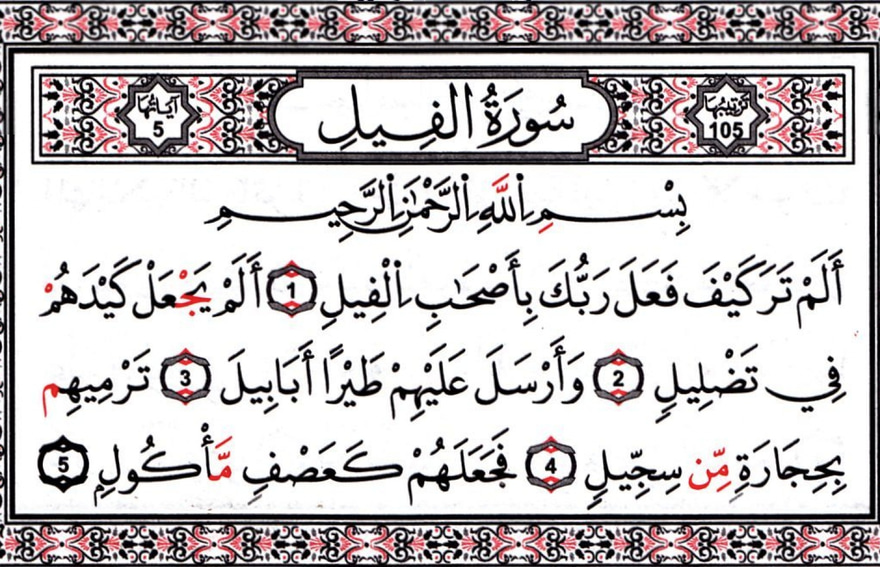 ترتيبها 105
سُورَةُ الفِيلِ
آيَاتُهَا 5
بِسْمِ اللَّهِ الرَّحْمَٰنِ الرَّحِيمِ
أَلَمْ تَرَ كَيْفَ فَعَلَ رَبُّكَ بِأَصْحَٰبِ اِلْفِيلِ 1 أَلَمْ يَجْعَلْ كَيْدَهُمْ
فِي تَضْلِيلٍ 2 وَأَرْسَلَ عَلَيْهِمْ طَيْرًا أَبَابِيلَ 3 تَرْمِيهِم
بِحِجَارَةٍ مِّن سِجِّيلٍ 4 فَجَعَلَهُمْ كَعَصْفٍ مَّأْكُولٍ 5